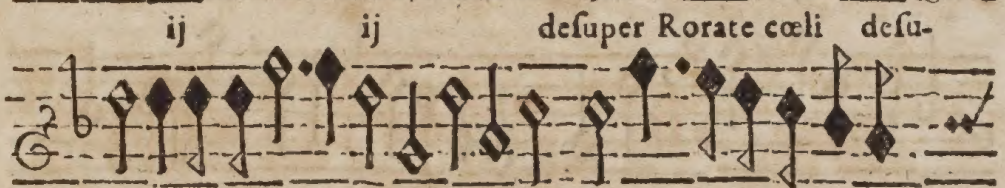 ij ij deſuper Rorate cœli deſu-